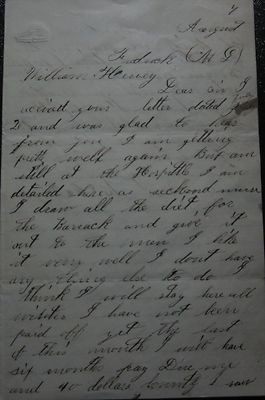 August 4
Fredrick (M D)
William Henry
Dear Sir I
recived your letter dated
2 and was glad to hear
from you I am getting
prity well again. But am
still at the Hospittle I am
detailed here as seckond nurse
I draw all the diet, for
the barrack and give it
out to the men I like
it very well I dont have
any thing else to do I
think I will stay here all
winter I have not been
paid off yet the last
of this month I will have
six months pay Due me
and 40 dollars bounty I